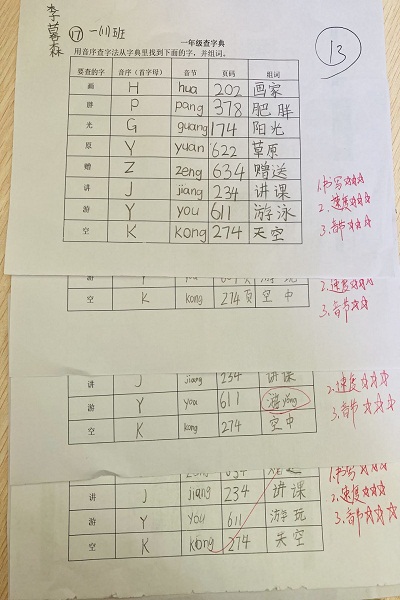 李暮森
⑰ 一(1)班
⑬
一年级查字典
用音序查字法从字典里找到下面的字，并组词。
要查的字 音序（首字母） 音节 页码 组词
画 H hua 202 画家
胖 P pang 378 肥胖
光 G guang 174 阳光
原 Y yuan 622 草原
赠 Z zeng 634 赠送
讲 J jiang 234 讲课
游 Y you 611 游泳
空 K kong 274 天空
1.书写☆☆☆
2.速度☆☆☆
3.音节☆☆☆
游 Y
空 K kong 274页 空中
2.速度☆☆☆
3.音节☆☆
讲 J jiang 234 讲课
游 Y you 611 游yǒng
空 K kong 274 空中
2.速度☆☆☆
3.音节☆☆☆
讲 J jiang 234 讲课
游 Y you 611 游玩
空 K kong 274 天空
1.书写☆☆☆
2.速度☆☆☆
3.音节☆☆☆